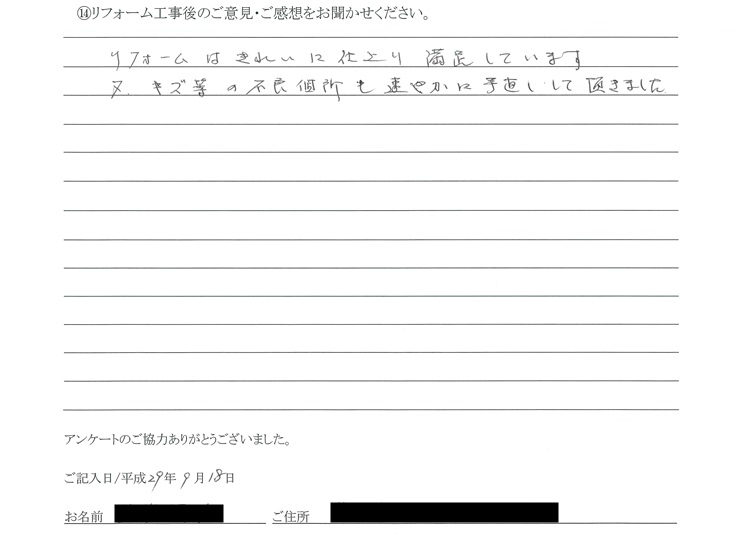 ⑭リフォーム工事後のご意見・ご感想をお聞かせください。
リフォームはきれいに仕上り 満足しています
又、キズ等の不良個所も速やかに手直しして頂きました
アンケートのご協力ありがとうございました。
ご記入日/平成29年9月18日
お名前 ご住所